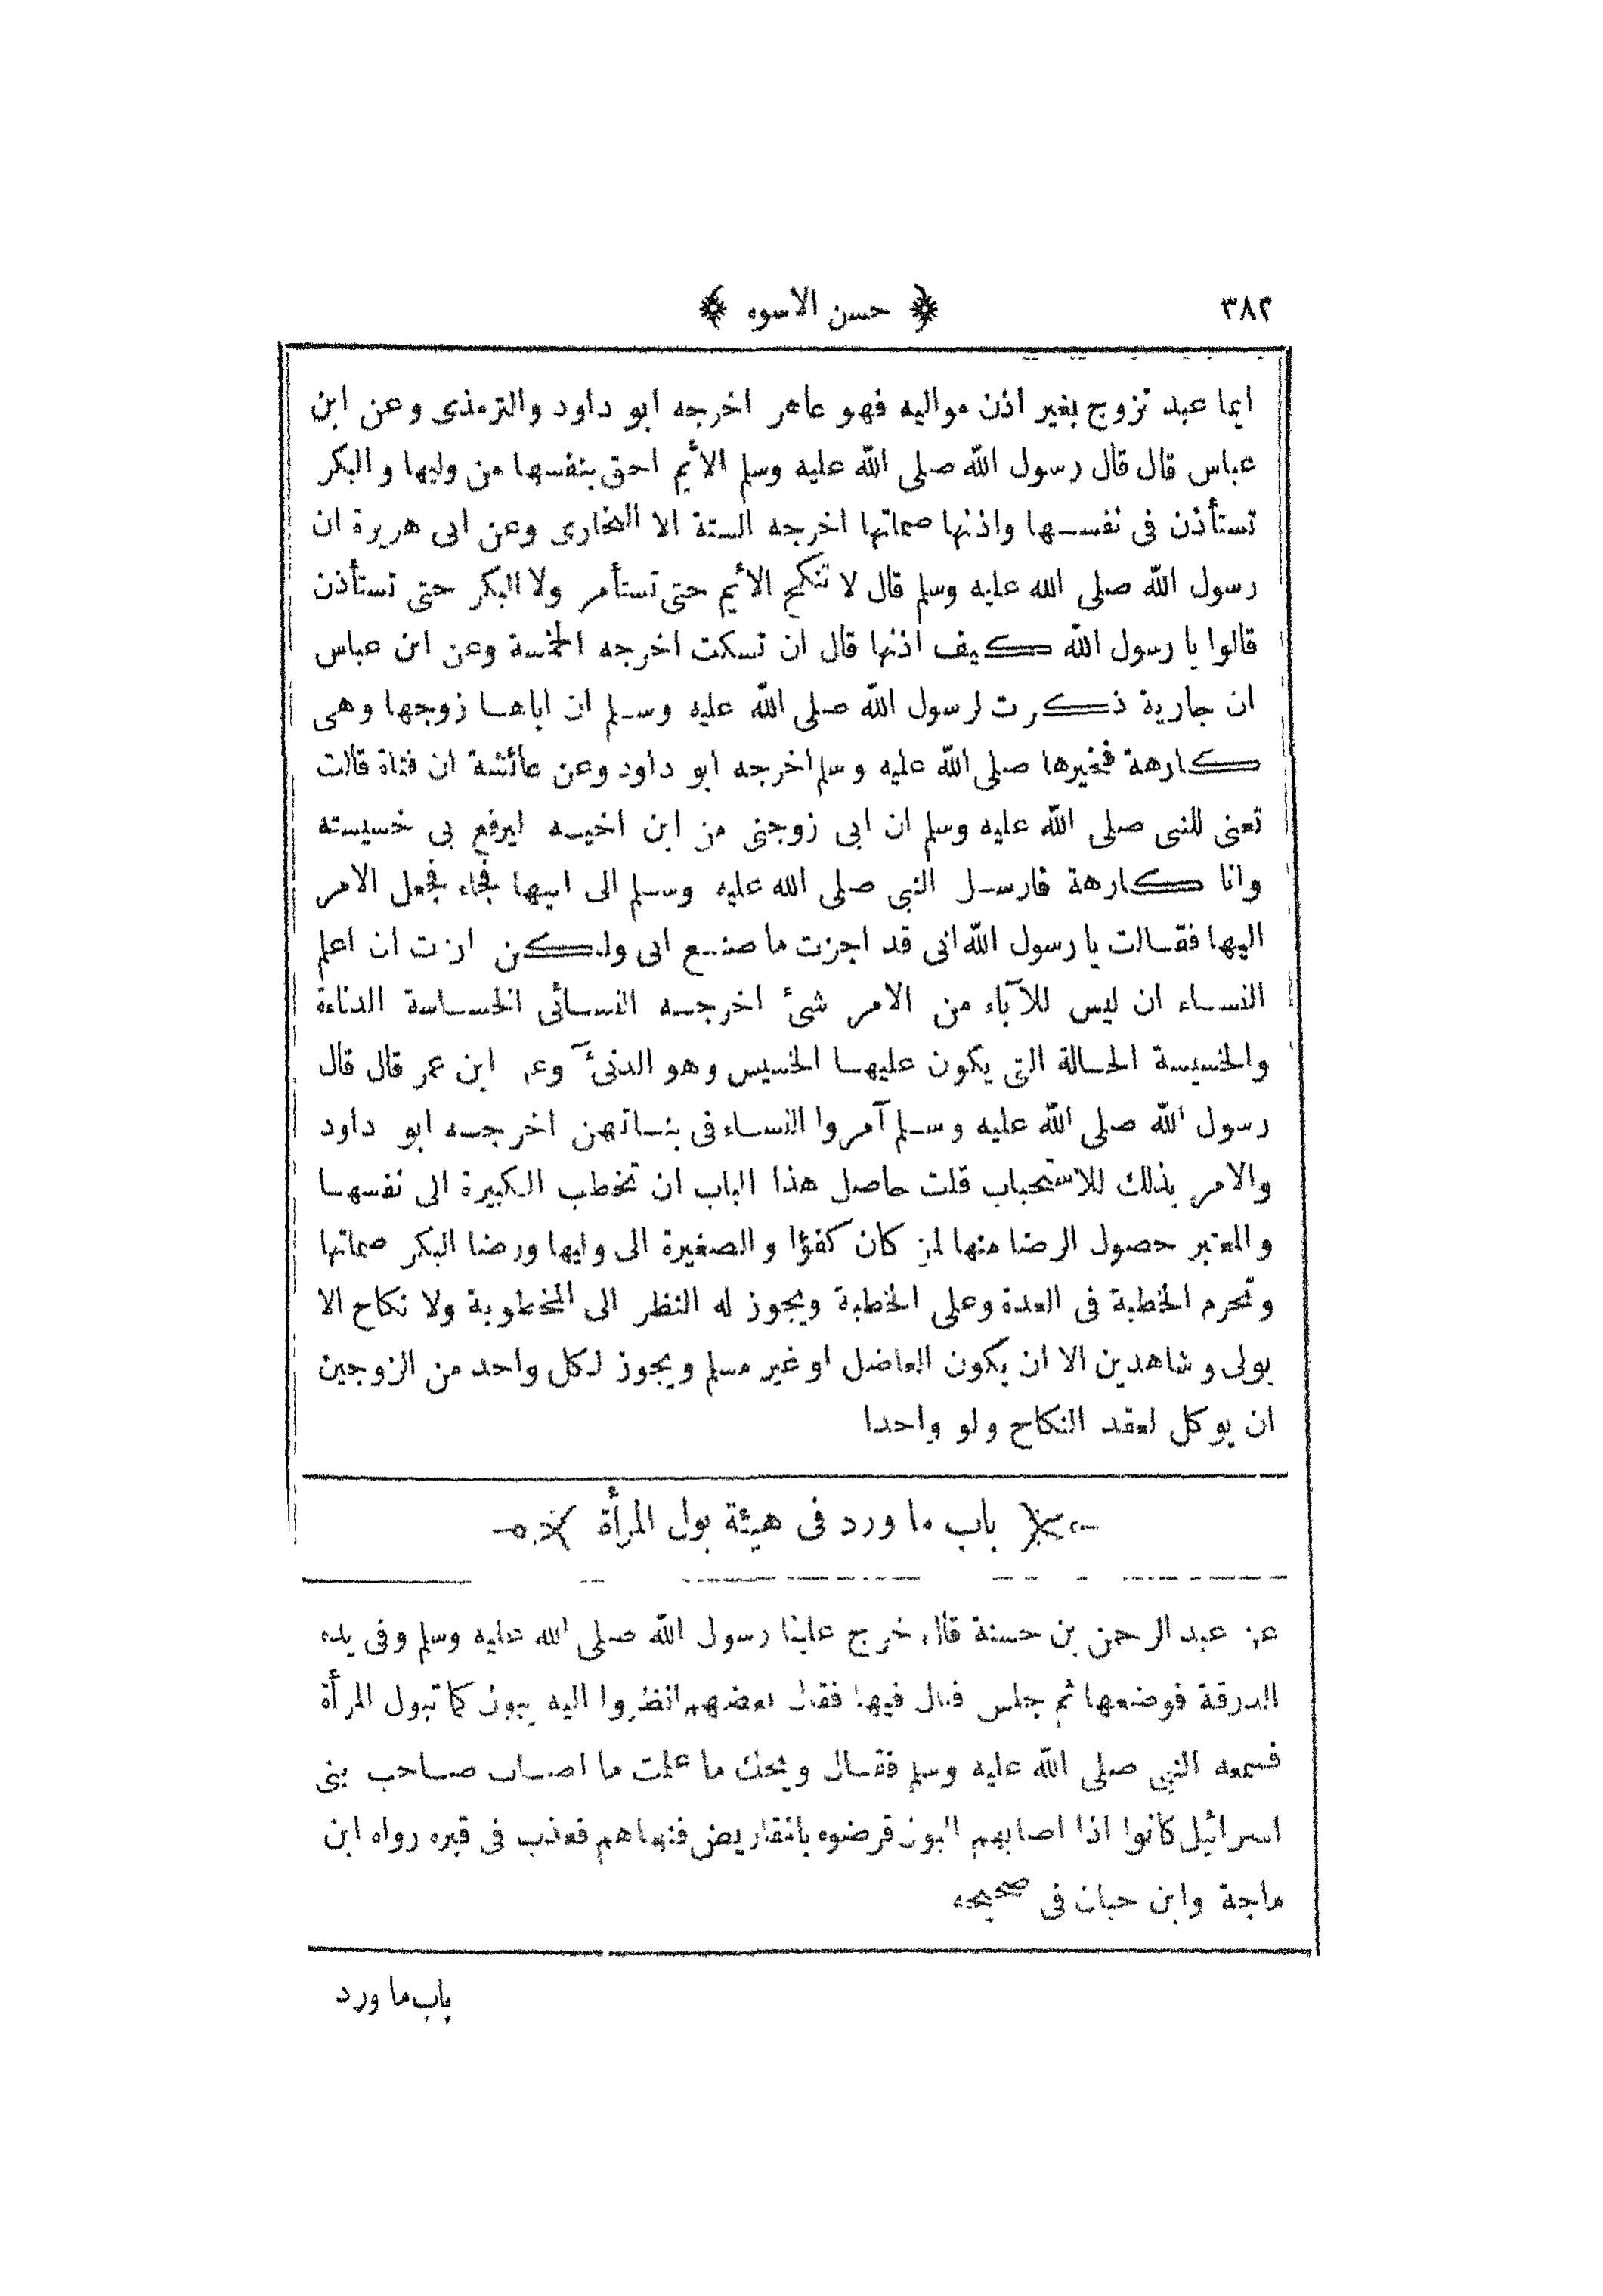 ٣٨٢ ﴿ حسن الاسوه ﴾
ايما عبد تزوج بغير اذن مواليه فهو عاهر اخرجه ابو داود والترمذى وعن ابن
عباس قال قال رسول الله صلى الله عليه وسلم الأيم احق بنفسها من وليها والبكر
تستأذن فى نفسها واذنها صماتها اخرجه الستة الا البخارى وعن ابى هريرة ان
رسول الله صلى الله عليه وسلم قال لا تنكح الأيم حتى تستأمر ولا البكر حتى تستأذن
قالوا يا رسول الله كيف اذنها قال ان تسكت اخرجه الخمسة وعن ابن عباس
ان جارية ذكرت لرسول الله صلى الله عليه وسلم ان اباها زوجها وهى
كارهة فخيرها صلى الله عليه وسلم اخرجه ابو داود وعن عائشة ان فتاة قالت
تعنى للنبى صلى الله عليه وسلم ان ابى زوجنى من ابن اخيه ليرفع بى خسيسته
وانا كارهة فارسل النبى صلى الله عليه وسلم الى ابيها فجاء فجعل الامر
اليها فقالت يا رسول الله انى قد اجزت ما صنع ابى ولكن اردت ان اعلم
النساء ان ليس للآباء من الامر شئ اخرجه النسائى الخساسة الدناءة
والخسيسة الحالة التى يكون عليها الخسيس وهو الدنئ وعن ابن عمر قال قال
رسول الله صلى الله عليه وسلم آمروا النساء فى بناتهن اخرجه ابو داود
والامر بذلك للاستحباب قلت حاصل هذا الباب ان تخطب الكبيرة الى نفسها
والمعتبر حصول الرضا منها لمن كان كفؤا والصغيرة الى وليها ورضا البكر صماتها
وتحرم الخطبة فى العدة وعلى الخطبة ويجوز له النظر الى المخطوبة ولا نكاح الا
بولى وشاهدين الا ان يكون العاضل او غير مسلم ويجوز لكل واحد من الزوجين
ان يوكل لعقد النكاح ولو واحدا
باب ما ورد فى هيئة بول المرأة
عن عبد الرحمن بن حسنة قال خرج علينا رسول الله صلى الله عليه وسلم وفى يده
الدرقة فوضعها ثم جلس فبال فيها فقال بعضهم انظروا اليه يبول كما تبول المرأة
فسمعه النبى صلى الله عليه وسلم فقال ويحك ما علمت ما اصاب صاحب بنى
اسرائيل كانوا اذا اصابهم البول قرضوه بالمقاريض فنهاهم فعذب فى قبره رواه ابن
ماجة وابن حبان فى صحيحه
باب ما ورد